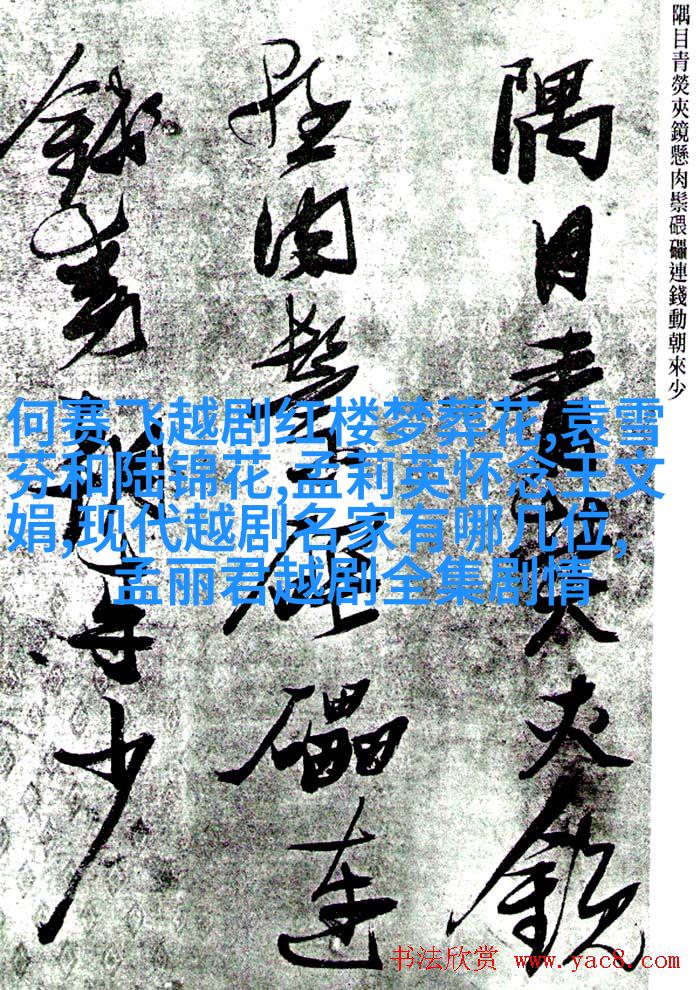 隅目青熒夾鏡懸肉鬃碨礧連錢動朝來少
隅目青熒夾鏡
懸肉鬃碨礧連
錢動朝來少
何赛飞越剧红楼梦葬花,袁雪
芬和陆锦花,孟莉英怀念王文
娟,现代越剧名家有哪几位,
孟丽君越剧全集剧情
书法欣赏 www.yac8.com